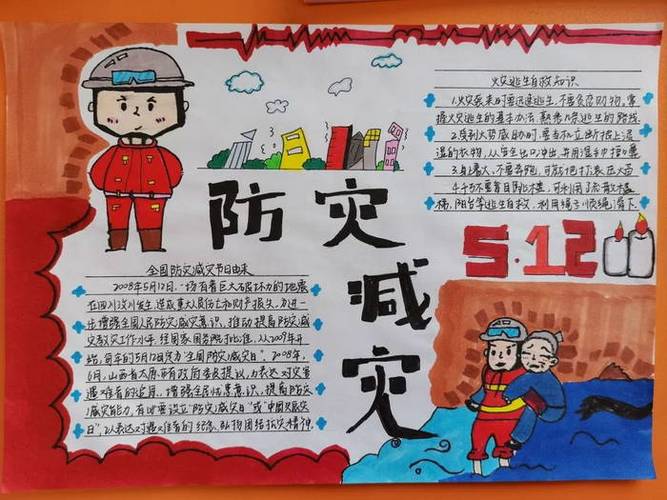 防灾
减灾
5.12
火灾逃生自救知识
1.火灾袭来时要迅速逃生,不要贪恋财物,掌
握火灾逃生的基本办法,熟悉几条逃生的路线
2.受到火势威胁时,要当机立断披上浸
湿的衣物,从安全出口冲出,并用湿毛巾捂口鼻
3.身上着火,不要奔跑,可就地打滚
4.千万不要盲目跳楼,可利用疏散楼
梯,阳台等逃生自救,利用绳子顺绳滑下
全国防灾减灾节日由来
2008年5月12日,一场有着巨大破坏力的地震
在四川汶川发生,造成重大人员伤亡和财产损失,为进一
步增强全国人民防灾减灾意识,推动提高防灾减
灾救灾工作水平,经国家国务院批准,从2009年开
始,每年的5月12日定为“全国防灾减灾日”。2008年,
6月,山西省太原市有政府委员提议,为表达对灾害
遇难者的追思,增强全民忧患意识,提高防灾
减灾能力,有必要设立“防灾减灾日”或“中国灾
日”,以表达对遇难者的纪念,弘扬团结抗灾精神